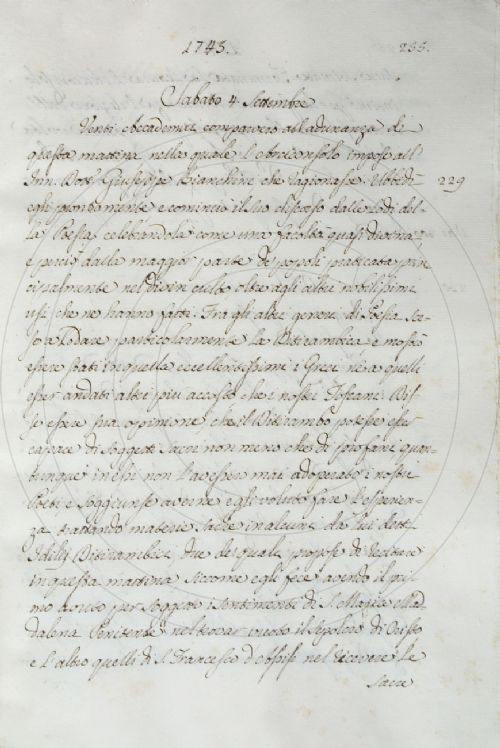 1743. 235.
Sabato 4. Settembre
Venti Accademici comparvero all'adunanza di
questa mattina nella quale l'Arciconsolo impose all'
Inn. Dott. Giuseppe Bianchini che ragionasse. Ubbidì 229
egli prontamente e cominciò il suo discorso dalle lodi del-
la Poesia celebrandola come una facoltà quasi divina
e perciò dalla maggior parte de popoli praticata prin
cipalmente nel divin culto oltre agli altri nobilissimi
usi che ne hanno fatti. Fra gli altri generi di Poesia sce-
se a lodare particolarmente la Ditirambica, e mostrò
essere stati in quella eccellentissimi i Greci ne a quelli
esser andati altri più accosto che i nostri Toscani. Dis-
se essere sua opinione che il Ditirambo potesse esser
capace di soggetti sacri non meno che di profani quan-
tunque in essi non l'avessero mai adoperato i nostri
Poeti e soggiunse averne egli voluto fare l'esperien-
za trattando materie sacre in alcuni da lui detti
Idilli Ditirambici, due de quali propose di leggere
in questa mattina siccome egli fece avendo il pri
mo avuto per soggetto i sentimenti di S. Maria Mad-
dalena Penitente nel trovar vuoto il Sepolcro di Cristo
e l'altro quelli di S. Francesco d'Assisi nel ricevere le
sacre